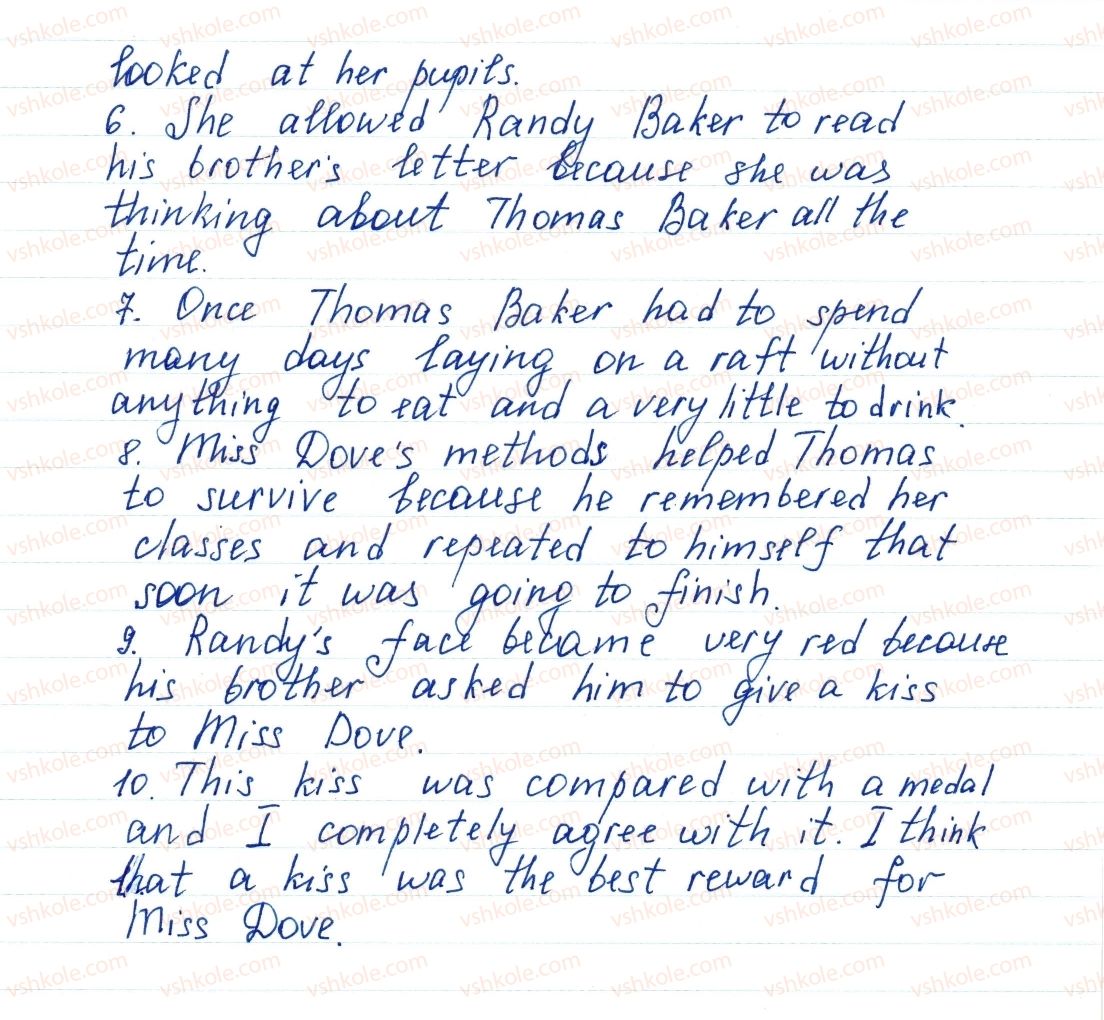 looked at her pupils.
6. She allowed Randy Baker to read
his brother's letter because she was
thinking about Thomas Baker all the
time.
7. Once Thomas Baker had to spend
many days laying on a raft without
anything to eat and a very little to drink.
8. Miss Dove's methods helped Thomas
to survive because he remembered her
classes and repeated to himself that
soon it was going to finish.
9. Randy's face became very red because
his brother asked him to give a kiss
to Miss Dove.
10. This kiss was compared with a medal
and I completely agree with it. I think
that a kiss was the best reward for
Miss Dove.
vshkole.com